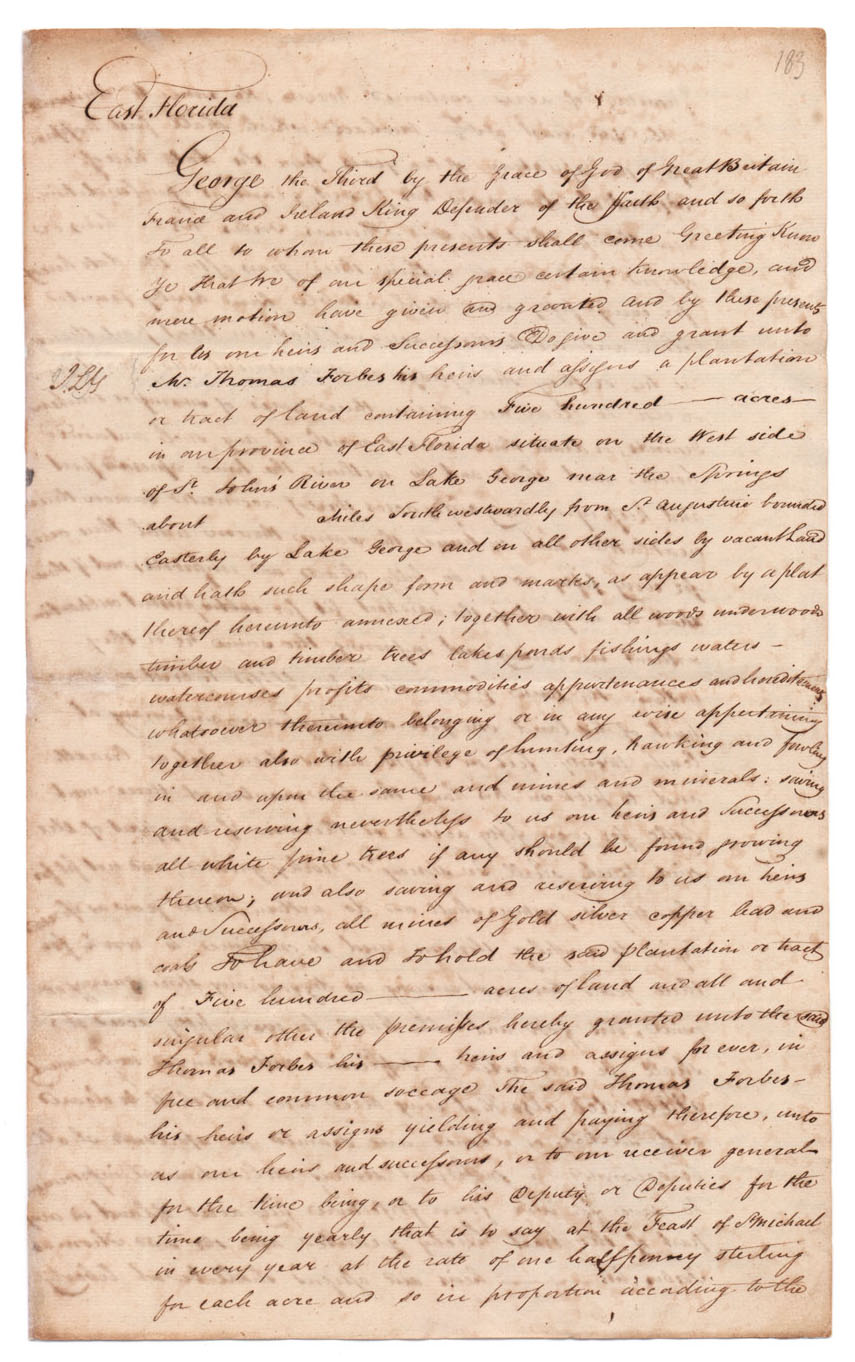 183
East Florida
George the Third by the Grace of God of Great Britain
France and Ireland King Defender of the Faith and so forth
To all to whom these presents shall come Greeting Know
Ye that We of our special grace certain knowledge, and
mere motion have given and granted and by these presents
for us our heirs and Successours Do give and grant unto
Mr. Thomas Forbes his heirs and assigns a plantation
or tract of land containing Five hundred — acres —
in our province of East Florida situate on the West side
of St. John's River on Lake George near the Springs
about Miles Southwestwardly from St. Augustine bounded
Easterly by Lake George and on all other sides by vacant Land
and hath such shape form and marks, as appear by a plat
thereof hereunto annexed; together with all woods underwoods
timber and timber trees lakes ponds fishings waters -
watercourses profits commodities appurtenances and hereditaments
whatsoever thereunto belonging or in any wise appertaining
together also with privilege of hunting, hawking and fowling
in and upon the same and mines and minerals: saving
and reserving nevertheless to us our heirs and Successours
all white pine trees if any should be found growing
thereon; and also saving and reserving to us our heirs
and Successours, all mines of Gold silver copper lead and
coals To have and To hold the said plantation or tract
of Five hundred — acres of land and all and
singular other the premises hereby granted unto the said
Thomas Forbes his — heirs and assigns for ever, in
free and common soccage The said Thomas Forbes -
his heirs or assigns yielding and paying therefore, unto
us our heirs and successours, or to our receiver general
for the time being, or to his Deputy or Deputies for the
time being yearly that is to say at the Feast of St Michael
in every year at the rate of one halfpenny sterling
for each acre and so in proportion according to the